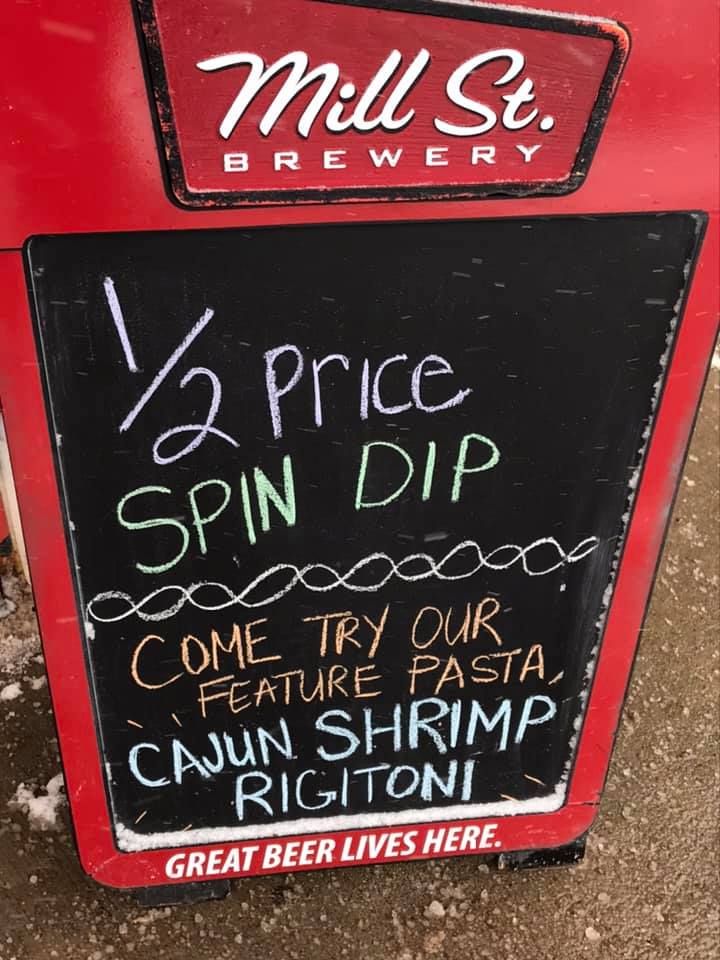 Mill St.
BREWERY
1/2 Price
SPIN DIP
COME TRY OUR
FEATURE PASTA,
CAJUN SHRIMP
RIGITONI
GREAT BEER LIVES HERE.